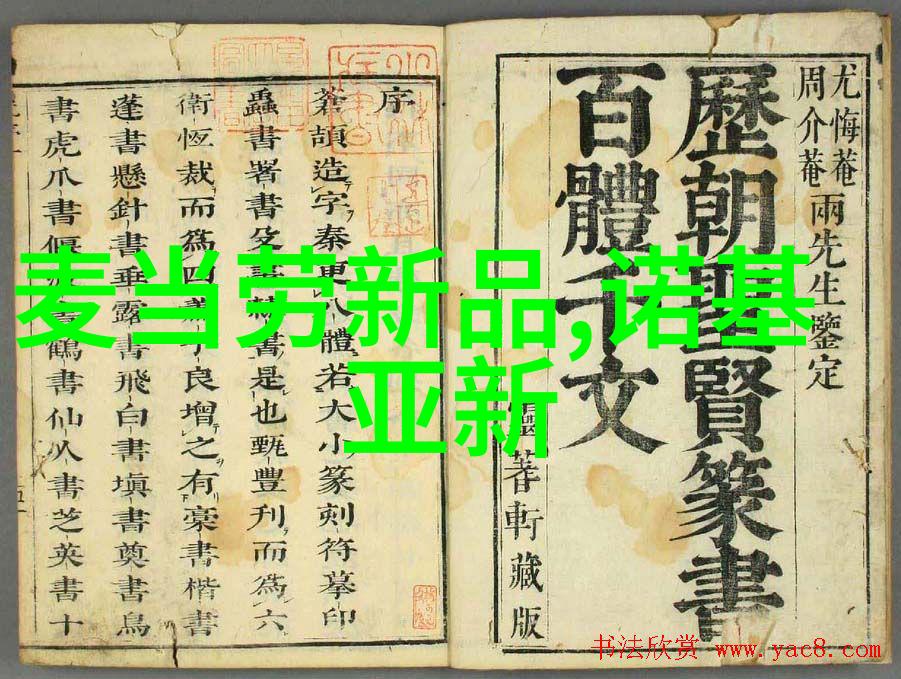 尤悔菴
周介菴
兩先生鑒定
歷朝聖賢篆書
百體千文
蓍軒藏版
序
蒼頡造字秦更八體若大小篆刻符摹印
蟲書署書殳書隷書是也甄豐刋而爲六
衛恆裁而爲四良增之有豪書楷書
蓬書懸針書垂露書飛白書塡書奠書鳥
書虎爪書偃波書鶴書仙人書芝英書十
麦当劳新品,诺基
亚新
书法欣赏 www.yac8.com